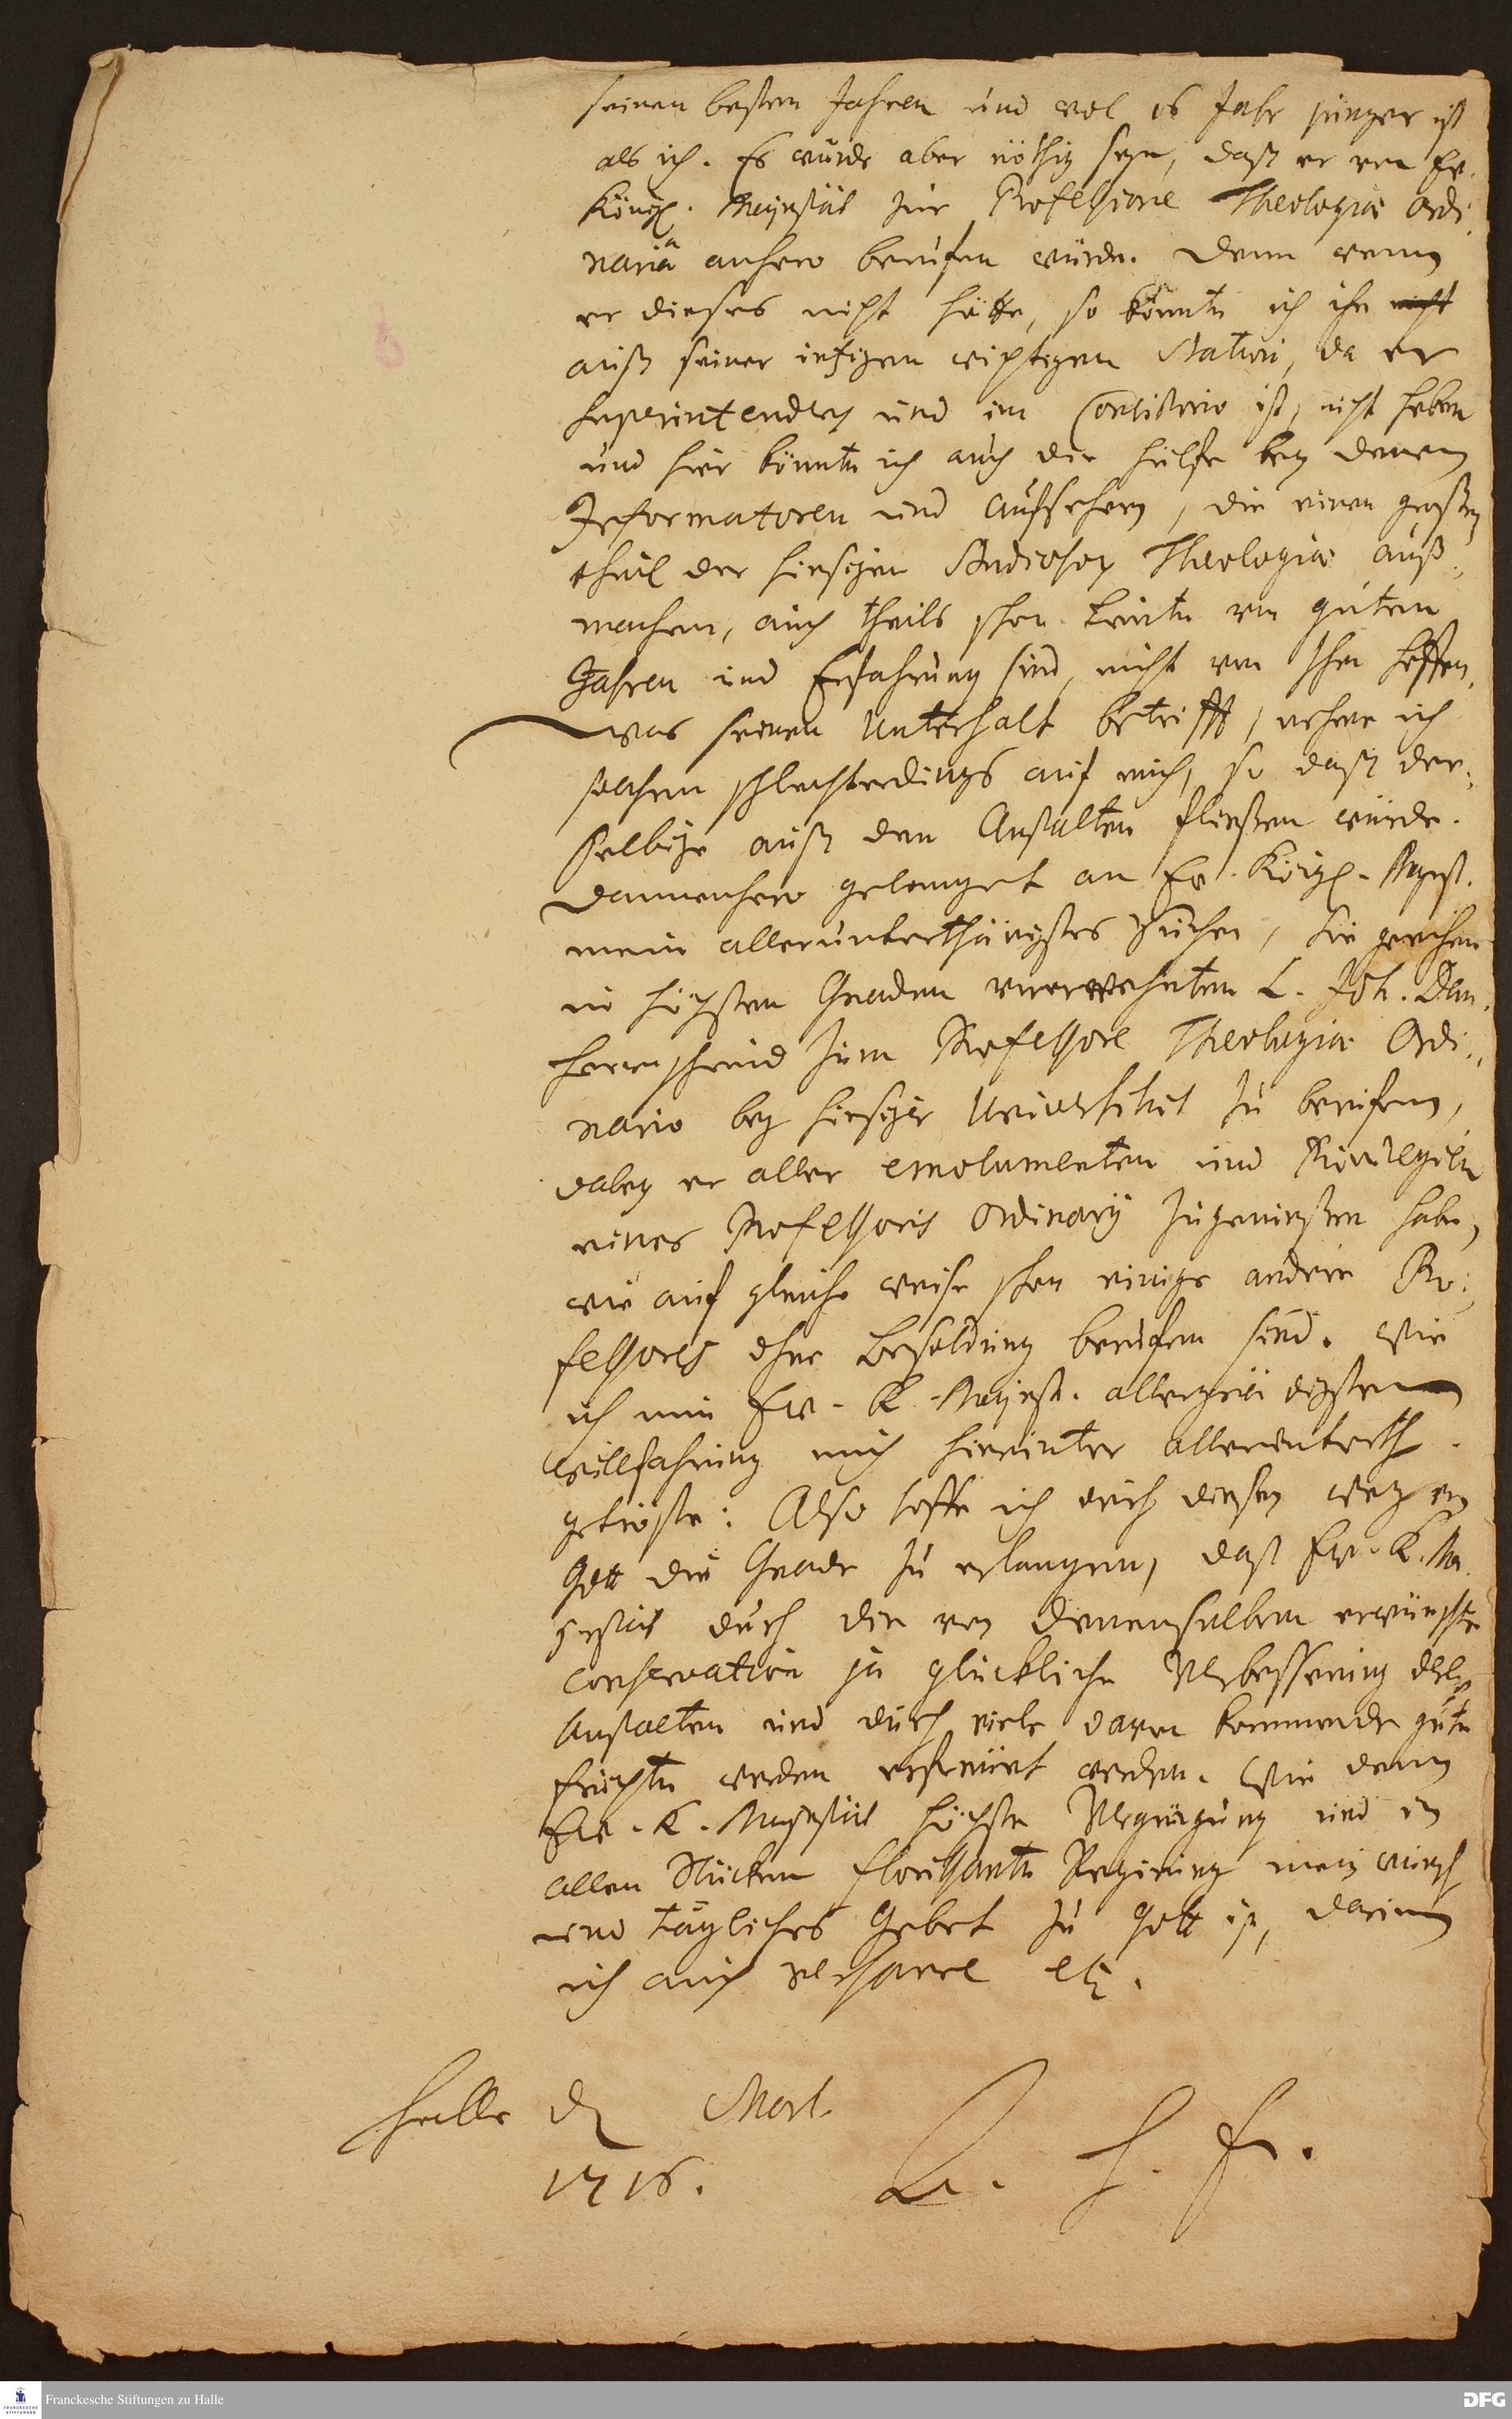 seinen besten Jahren und wol 16 Jahr jünger ist
als ich. Es würde aber nöthig seyn, daß er von Ew.
Königl. Majestät zur Professione Theologiæ Ordi-
nariâ anhero berufen würde. Denn wenn
er dieses nicht hätte, so könnte ich ihn nicht
auß seiner ietzigen wichtigen Station, da er
Superintendens und im Consistorio ist, nicht heben
und hier könnte ich auch die hülfe bey denen
Informatoren und Aufsehern, die einen großen
theil der hiesigen Studiosor Theologiæ auß-
machen, auch theils schon Leute von guten
Jahren und Erfahrung sind, nicht von Ihm hoffen.
Was seinen Unterhalt betrifft, nehme ich
solchen schlechterdings auf mich, so daß der-
selbige auß den Anstalten fließen würde.
Dannenhero gelanget an Ew. Königl. Majest.
mein allerunterthänigstes suchen, Sie geruhen
in höchsten Gnaden vorerwehnten L. Joh. Dan.
Herrnschmid zum Professore Theologiæ Ordi-
nario bey hiesiger Universität zu berufen,
dabey er aller emolumenten und Privilegien
eines Professoris Ordinarij zugenießen habe,
wie auf gleiche weise schon einige andere Pro-
fessores ohne Besoldung berufen sind. Wie
ich nun Ew. K. Majest. allergnädigsten
Willfahrung mich hierunter allerunterth.
getröste: Also hoffe ich durch diesen weg von
Gott die Gnade zu erlangen, daß Ew. K. Ma-
jestät durch die von Denenselben erwünschte
conservation ja glückliche Verbesserung dieser
Anstalten und durch viele davon kommende gute
früchte werden erfreuet werden. Wie denn
Ew. K. Majestät höchste Vergnügung und in
allen Stücken florissante Regierung mein wunsch
und tägliches Gebet zu Gott ist, darinn
ich auch verharre etc.
Halle d Mart.
1716.
A. H. Fr.
Franckesche Stiftungen zu Halle
DFG